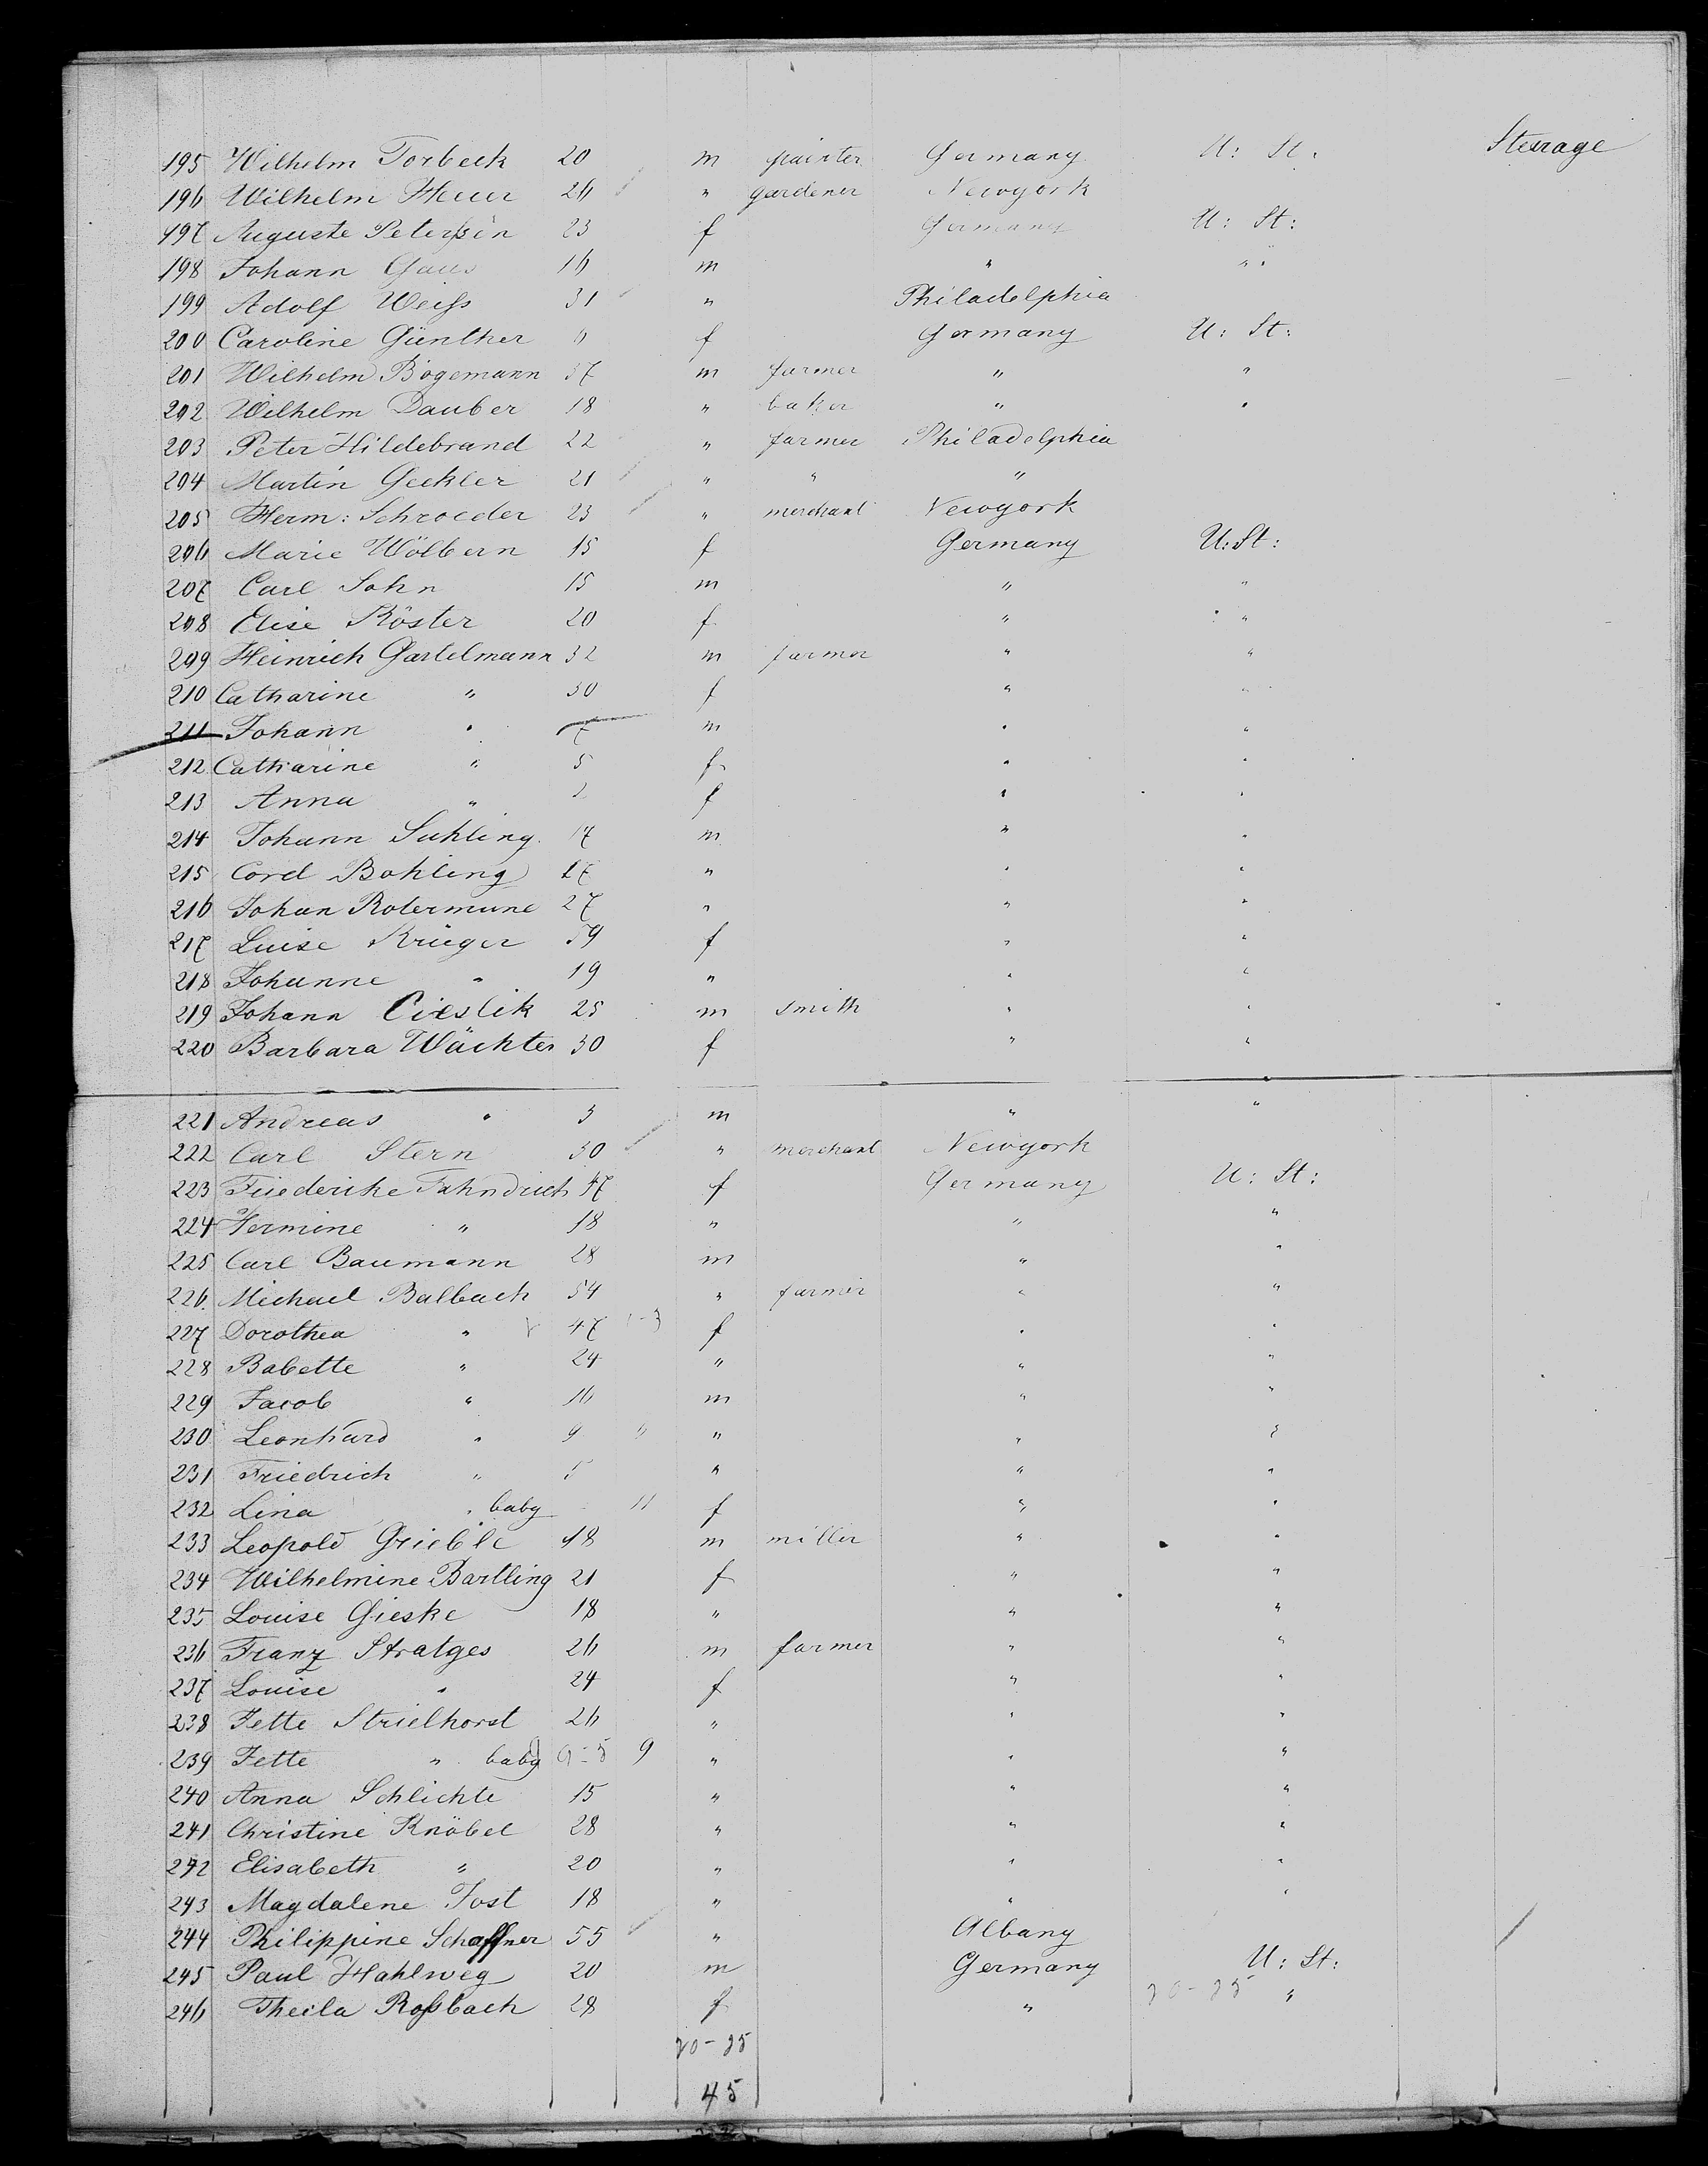 Steerage
195 Wilhelm Torbeck 20 m painter Germany U: St:
196 Wilhelm Heuer 26 " gardener Newyork
197 Auguste Peterßen 23 f Germany U: St:
198 Johann Gaus 16 m " "
199 Adolf Weiß 31 " Philadelphia
200 Caroline Günther 6 f Germany U: St:
201 Wilhelm Bögemann 37 m farmer " "
202 Wilhelm Dauber 18 " baker " "
203 Peter Hildebrand 22 " farmer Philadelphia
204 Martin Geckler 21 " " "
205 Herm: Schroeder 23 " merchant Newyork
206 Marie Wölbern 15 f Germany U: St:
207 Carl Sohn 15 m " "
208 Elise Köster 20 f " "
209 Heinrich Gartelmann 32 m farmer " "
210 Catharine " 30 f " "
211 Johann " 7 m " "
212 Catharine " 5 f " "
213 Anna " 2 f " "
214 Johann Suhling 17 m " "
215 Cord Bohling 17 " " "
216 Johan Rotermund 27 " " "
217 Luise Krüger 59 f " "
218 Johanne " 19 " " "
219 Johann Cieslik 25 m smith " "
220 Barbara Wächter 30 f " "
221 Andreas " 3 m " "
222 Carl Stern 30 " merchant Newyork
223 Friederike Fahndrich 47 f Germany U: St:
224 Hermine " 18 " " "
225 Carl Baumann 28 m " "
226 Michael Balbach 54 " farmer " "
227 Dorothea " 47 f " "
228 Babette " 24 " " "
229 Jacob " 16 m " "
230 Leonhard " 9 " " "
231 Friedrich " 5 " " "
232 Lina " baby 11 f " "
233 Leopold Grieble 48 m miller " "
234 Wilhelmine Bartling 21 f " "
235 Louise Gieske 18 " " "
236 Franz Stratges 26 m farmer " "
237 Louise " 24 f " "
238 Jette Strielhorst 26 " " "
239 Jette " baby 9 " " "
240 Anna Schlichte 15 " " "
241 Christine Knöbel 28 " " "
242 Elisabeth " 20 " " "
243 Magdalene Jost 18 " " "
244 Philippine Schaffner 55 " Albany
245 Paul Hahlweg 20 m Germany U: St:
246 Theila Roßbach 28 f " 20-25 "
20-25
45